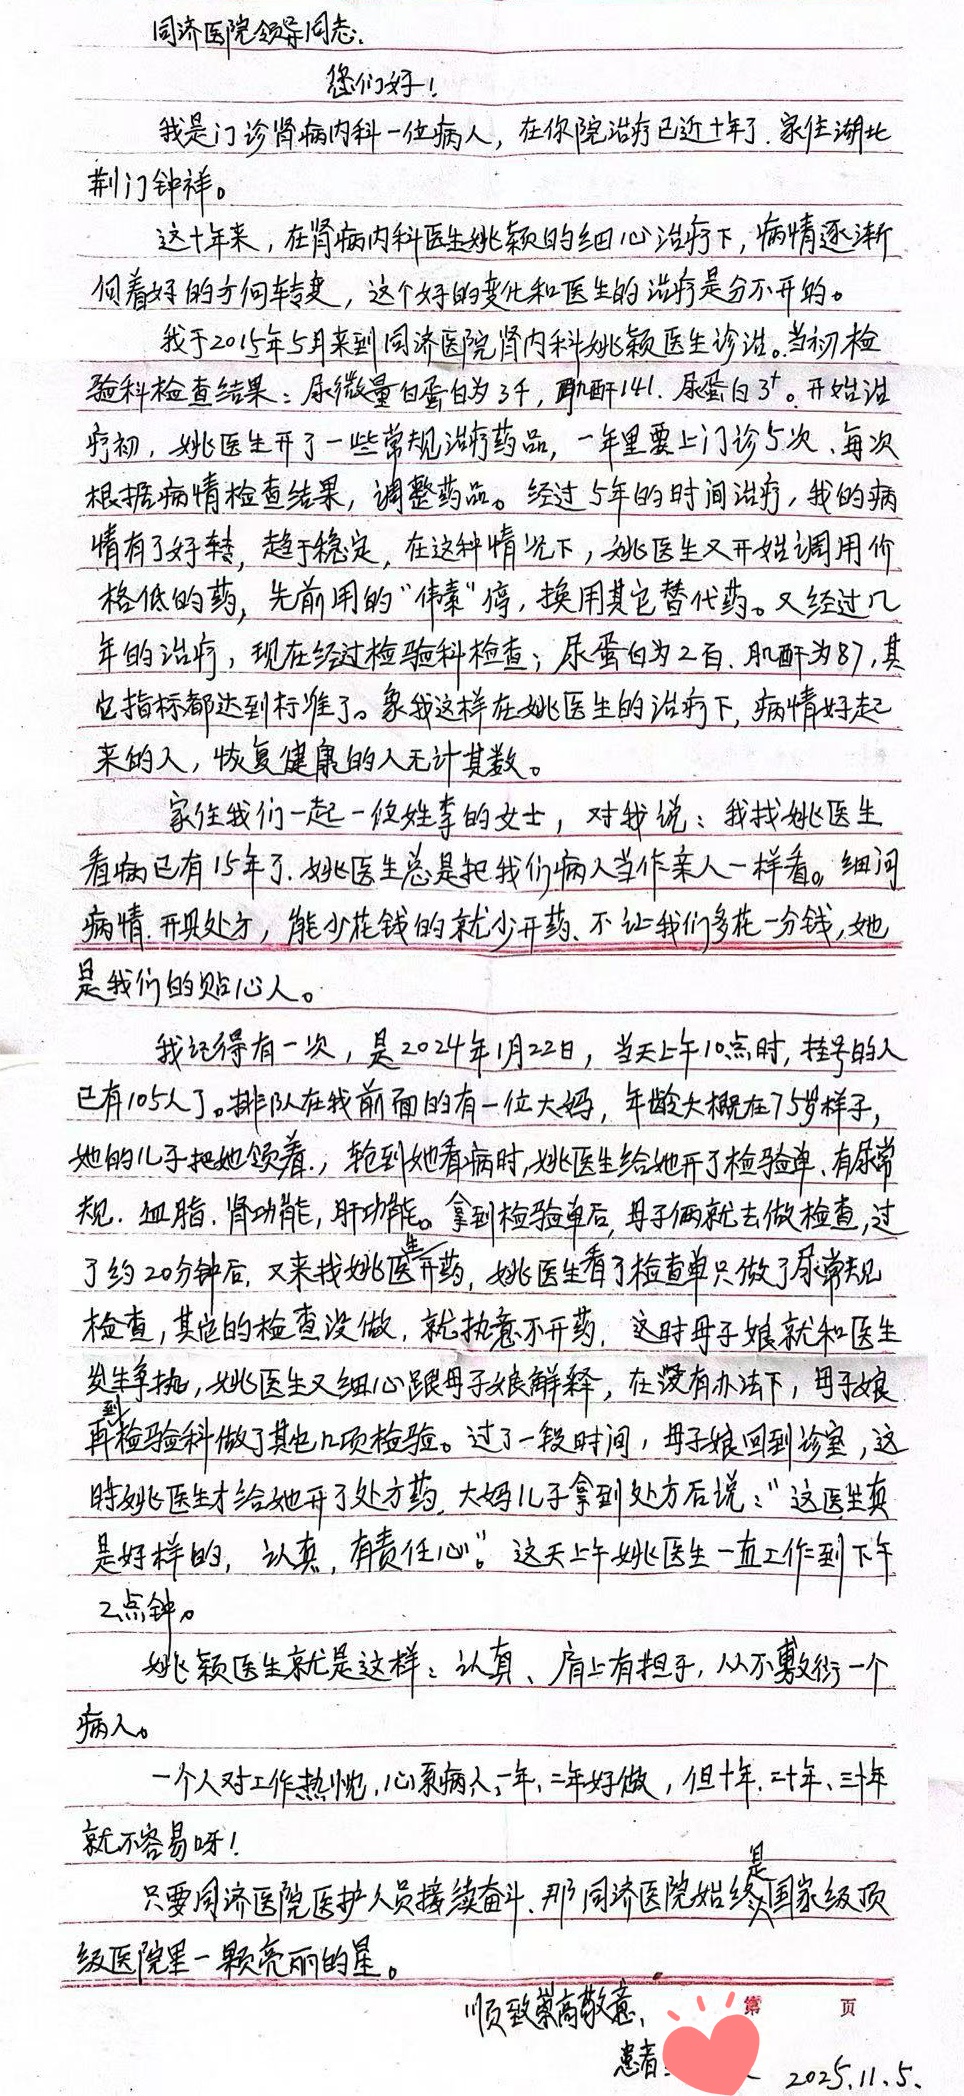 同济医院领导同志:
您们好!
我是门诊肾病内科一位病人，在你院治疗已近十年了.家住湖北
荆门钟祥。
这十年来，在肾病内科医生姚颖的细心治疗下，病情逐渐
向着好的方向转变，这个好的变化和医生的治疗是分不开的。
我于2015年5月来到同济医院肾内科姚颖医生诊治。当初检
验科检查结果：尿微量白蛋白为3千，肌酐141.尿蛋白3⁺。开始治
疗初，姚医生开了一些常规治疗药品，一年里要上门诊5次、每次
根据病情检查结果，调整药品。经过5年的时间治疗，我的病
情有了好转，趋于稳定，在这种情况下，姚医生又开始调用价
格低的药，先前用的“伟素”停，换用其它替代药。又经过几
年的治疗，现在经过检验科检查；尿蛋白为2百.肌酐为87，其
它指标都达到标准了。象我这样在姚医生的治疗下，病情好起
来的人，恢复健康的人无计其数。
家住我们一起一位姓李的女士，对我说：我找姚医生
看病已有15年了.姚医生总是把我们病人当作亲人一样看。细问
病情.开具处方，能少花钱的就少开药、不让我们多花一分钱，她
是我们的贴心人。
我记得有一次，是2024年1月22日，当天上午10点时，挂号的人
已有105人了。排队在我前面的有一位大妈，年龄大概在75岁样子，
她的儿子把她领着.，轮到她看病时，姚医生给她开了检验单、有尿常
规.血脂.肾功能，肝功能。拿到检验单后，母子俩就去做检查，过
了约20分钟后，又来找姚医生开药，姚医生看了检查单只做了尿常规
检查，其它的检查没做，就执意不开药，这时母子娘就和医生
发生争执，姚医生又细心跟母子娘解释，在没有办法下，母子娘
再到检验科做了其它几项检验。过了一段时间，母子娘回到诊室，这
时姚医生才给她开了处方药，大妈儿子拿到处方后说：“这医生真
是好样的，认真，有责任心”。这天上午姚医生一直工作到下午
2点钟。
姚颖医生就是这样：认真、肩上有担子，从不敷衍一个
病人。
一个人对工作热忱，心系病人，一年，二年好做，但十年、二十年、三十年
就不容易呀!
只要同济医院医护人员接续奋斗、那同济医院始终是国家级顶
级医院里一颗亮丽的星。
顺致崇高敬意、
第 页
患者:
2025.11.5.